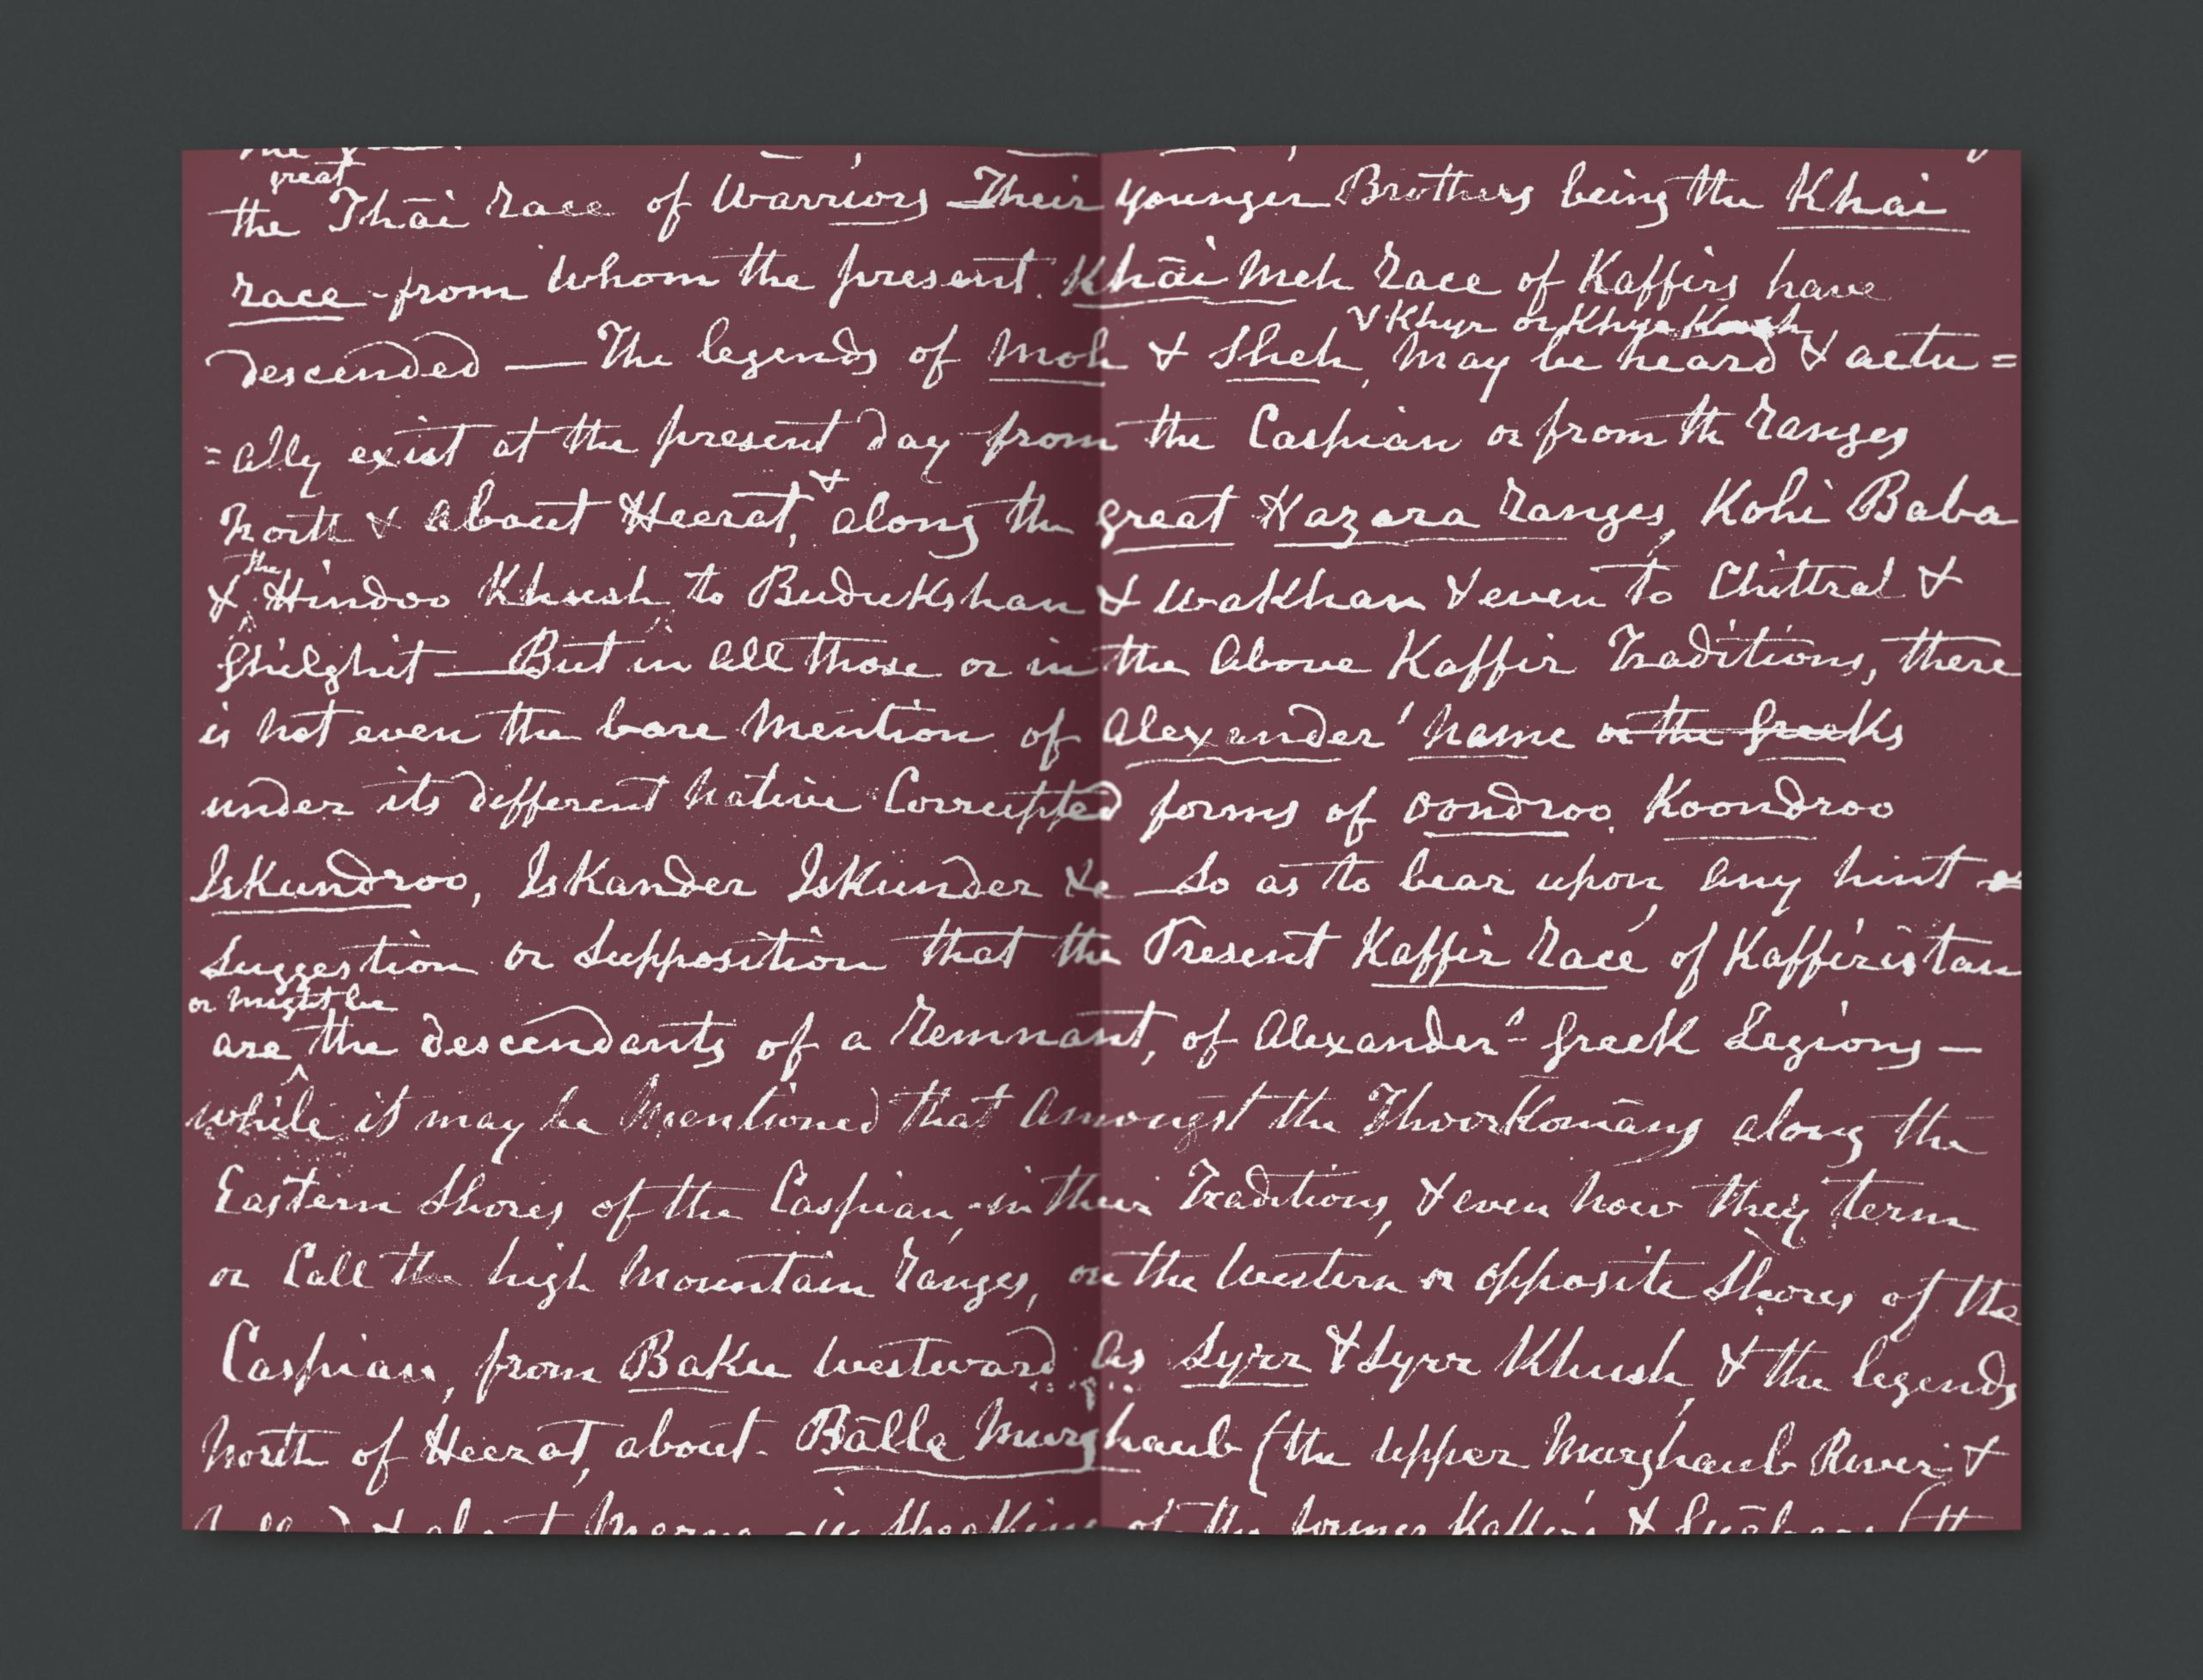 great
the Thāi race of Warriors Their younger Brothers being the Khai
race - from whom the present Khāi Meh race of Kaffirs have
& Khyr or Khya
descended — The legends of Moh & Sheh, may be heard & actu=
=ally exist at the present day from the Caspian or from th ranges
&
north & about Heerat, along the great Hazara ranges, Kohi Baba
the
& Hindoo Khush, to Budukshan & Wakhan & even to Chittral &
Ghilghit — But in all those or in the above Kaffir Traditions, there
is not even the bare mention of Alexander' name or the Greeks
under its different native Corrupted forms of Oondroo Koondroo
Iskundroo, Iskander Iskunder &c — So as to bear upon, any hint
Suggestion or Supposition that the Present Kaffir race of Kaffiristan
or might be
are the descendants of a remnant, of Alexander's Greek Legions —
while it may be mentioned that amongst the Thoorkomāns along the
Eastern Shores of the Caspian, - in their Traditions, & even now they term
or Call the high mountain ranges, on the Western or opposite Shores of the
Caspian, from Baku westward as Syrr & Syrr Khush, & the legends
north of Heerat, about - Bālle Murghaub (the upper Murghaub River &